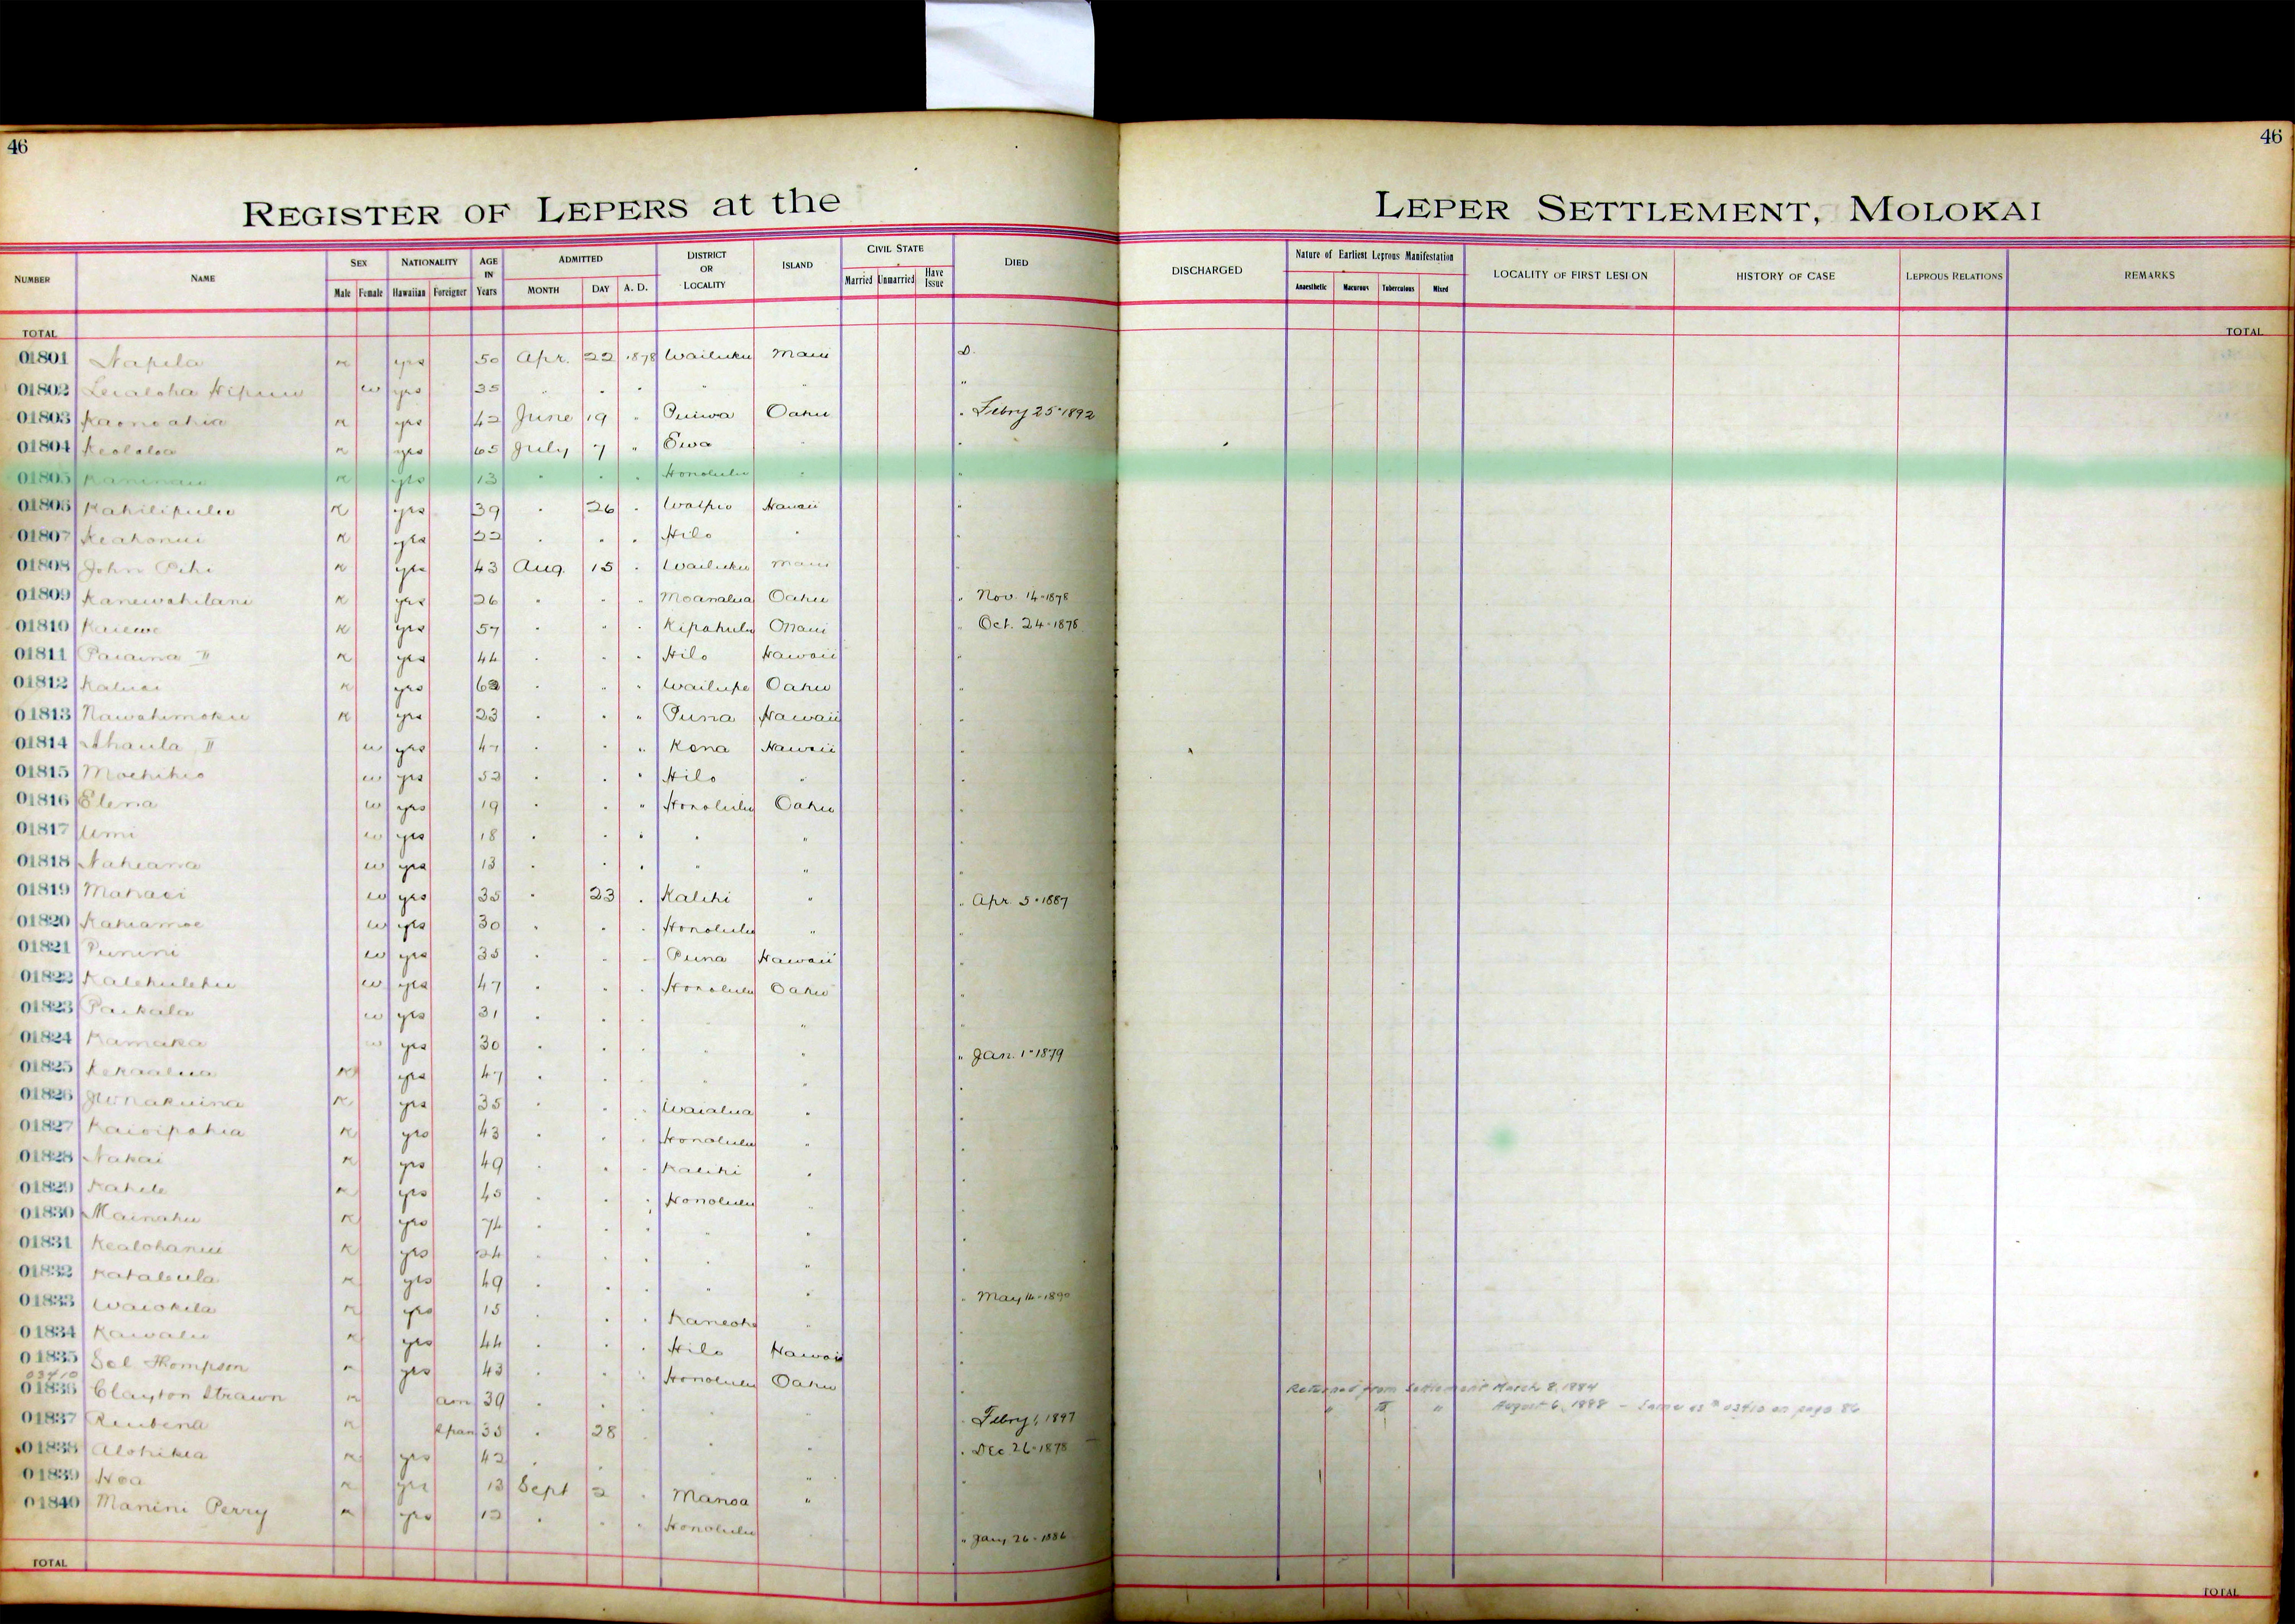 46
46
REGISTER OF LEPERS at the LEPER SETTLEMENT, MOLOKAI
NUMBER NAME SEX Male Female NATIONALITY Hawaiian Foreigner AGE IN Years ADMITTED MONTH DAY A. D. DISTRICT OR LOCALITY ISLAND CIVIL STATE Married Unmarried Have Issue DIED DISCHARGED Nature of Earliest Leprous Manifestation Anaesthetic Macurous Tuberculous Mixed LOCALITY OF FIRST LESION HISTORY OF CASE LEPROUS RELATIONS REMARKS
TOTAL TOTAL
01801 Napela yes 50 Apr. 22 1878 Wailuku Maui D.
01802 Lualoha w yes 35 " " " " " "
01803 Kaonoahia yes 42 June 19 " Puiwa Oahu " Febry 25 1892
01804 Keololoa yes 65 July 7 " Ewa " "
01805 yes 13 " " " Honolulu " "
01806 Kahilipulu yes 39 " 26 " Waipio Hawaii "
01807 Keahonui yes 22 " " " Hilo " "
01808 John yes 43 Aug. 15 " Wailuku Maui "
01809 Kanewahilani yes 26 " " " Moanalua Oahu " Nov. 14-1878
01810 Kaiewe yes 57 " " " Kipahulu Maui " Oct. 24-1878
01811 Paiaina II yes 44 " " " Hilo Hawaii "
01812 Kaluai yes 62 " " " Wailupe Oahu "
01813 Nawahimoku yes 23 " " " Puna Hawaii "
01814 Ahaula II w yes 47 " " " Kona Hawaii "
01815 w yes 52 " " " Hilo " "
01816 Elena w yes 19 " " " Honolulu Oahu "
01817 Umi w yes 18 " " " " " "
01818 Naheana w yes 13 " " " " " "
01819 w yes 35 " 23 " Kalihi " " Apr. 5-1887
01820 Kahiamoe w yes 30 " " " Honolulu " "
01821 Punini w yes 35 " " " Puna Hawaii "
01822 Kalehulehu w yes 47 " " " Honolulu Oahu "
01823 Paikala w yes 31 " " " " " "
01824 Kamaka w yes 30 " " " " " " Jan. 1-1879
01825 Kekaalua yes 47 " " " " " "
01826 yes 35 " " " Waialua " "
01827 Kaioipahia yes 43 " " " Honolulu " "
01828 Nakai yes 49 " " " Kalihi " "
01829 Kahele yes 45 " " " Honolulu " "
01830 Mainahu yes 74 " " " " " "
01831 Kealohanui yes 24 " " " " " "
01832 yes 49 " " " " " " May 14-1890
01833 Waiokila yes 15 " " " Kaneohe " "
01834 Kawalu yes 44 " " " Hilo Hawaii "
01835 Sol Thompson yes 43 " " " Honolulu Oahu " Returned from Settlement March 8, 1884
03410
01836 Clayton Strawn am 39 " " " " " " Febry 1, 1897 " " " August 6, 1888 - Same as # 03410 on page 86
01837 Reubena 35 " 28 " " " " Dec 26-1878
01838 Alohikea yes 42 " " " " " "
01839 Hoa yes 13 Sept 2 " Manoa " "
01840 Manini Perry yes 12 " " " Honolulu " Jany 26-1886
TOTAL TOTAL